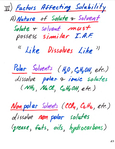 II) Factors Affecting Solubility
A) Nature of Solute & Solvent
Solute & solvent must
posess similar I.A.F
"Like Dissolves Like"
Polar Solvents (H2O, C2H5OH, etc.)
dissolve polar & ionic solutes
(NH3, NaCl, C2H5OH, etc.)
Nonpolar Solvents (CCl4, C6H6, etc.)
dissolve non polar solutes
(grease, fats, oils, hydrocarbons)